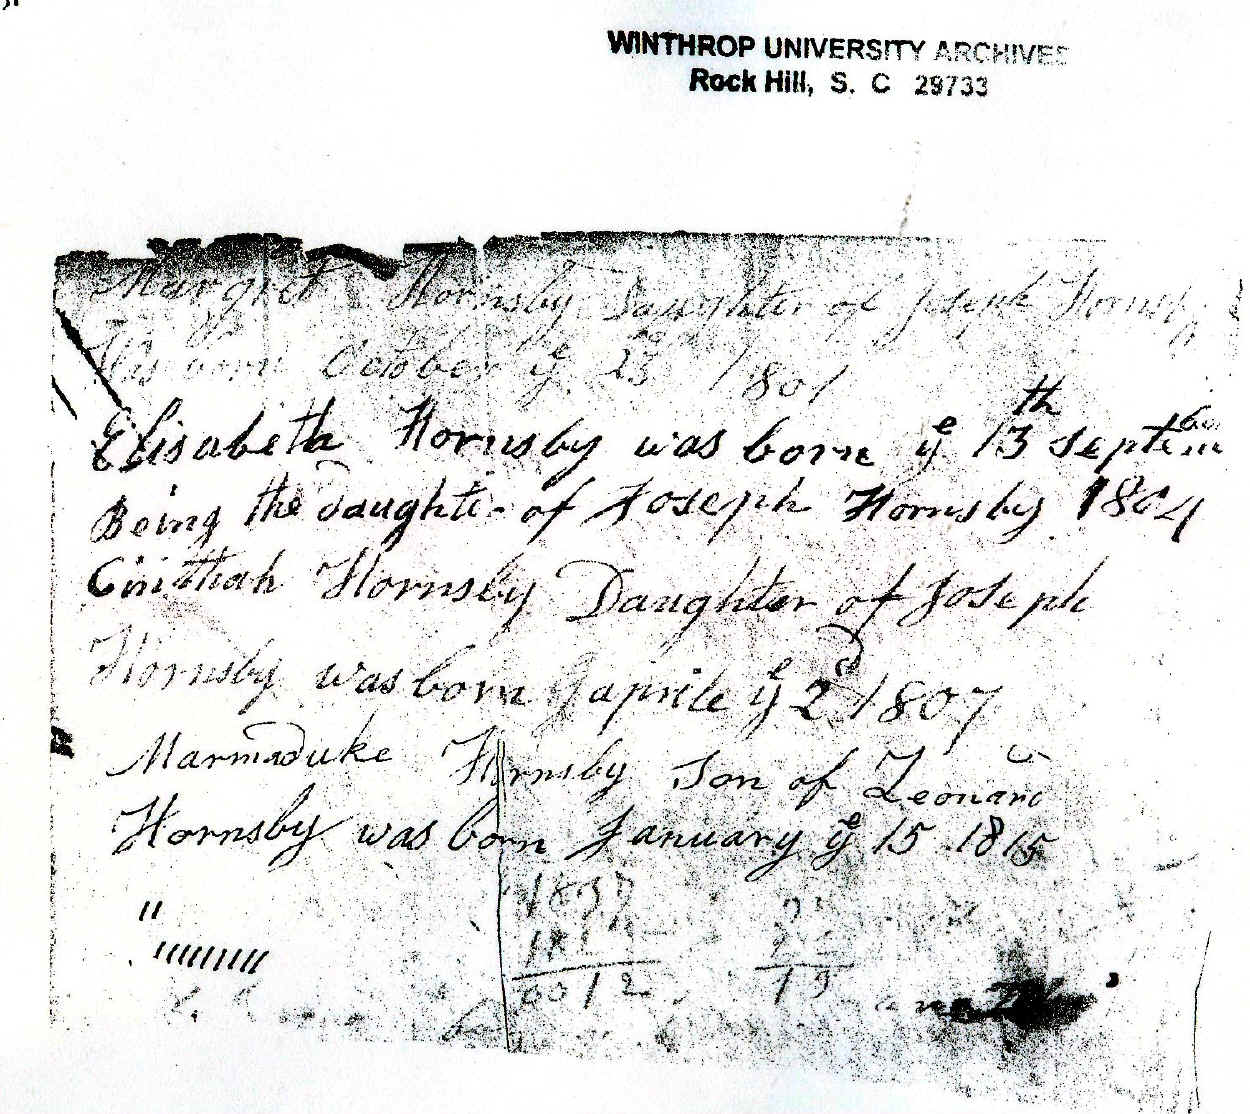 WINTHROP UNIVERSITY ARCHIVES
Rock Hill, S. C 29733
Margret Hornsby Daughter of Joseph Hornsby
Was born October ye 23 1801
Elisabeth Hornsby was born ye 13th Septem
Being the Daughter of Joseph Hornsby 1804
Hornsby Daughter of Joseph
Hornsby was born aprile ye 2d 1807
Marmaduke Hornsby Son of Leonard
Hornsby was born January ye 15 1815
12
19